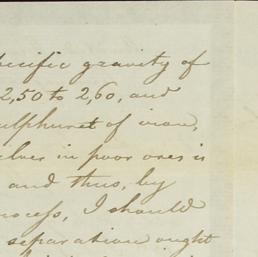 specific gravity of
2,50 to 2,60, and
sulphuret of iron,
silver in poor ores is
and thus, by
process, I should
separation ought